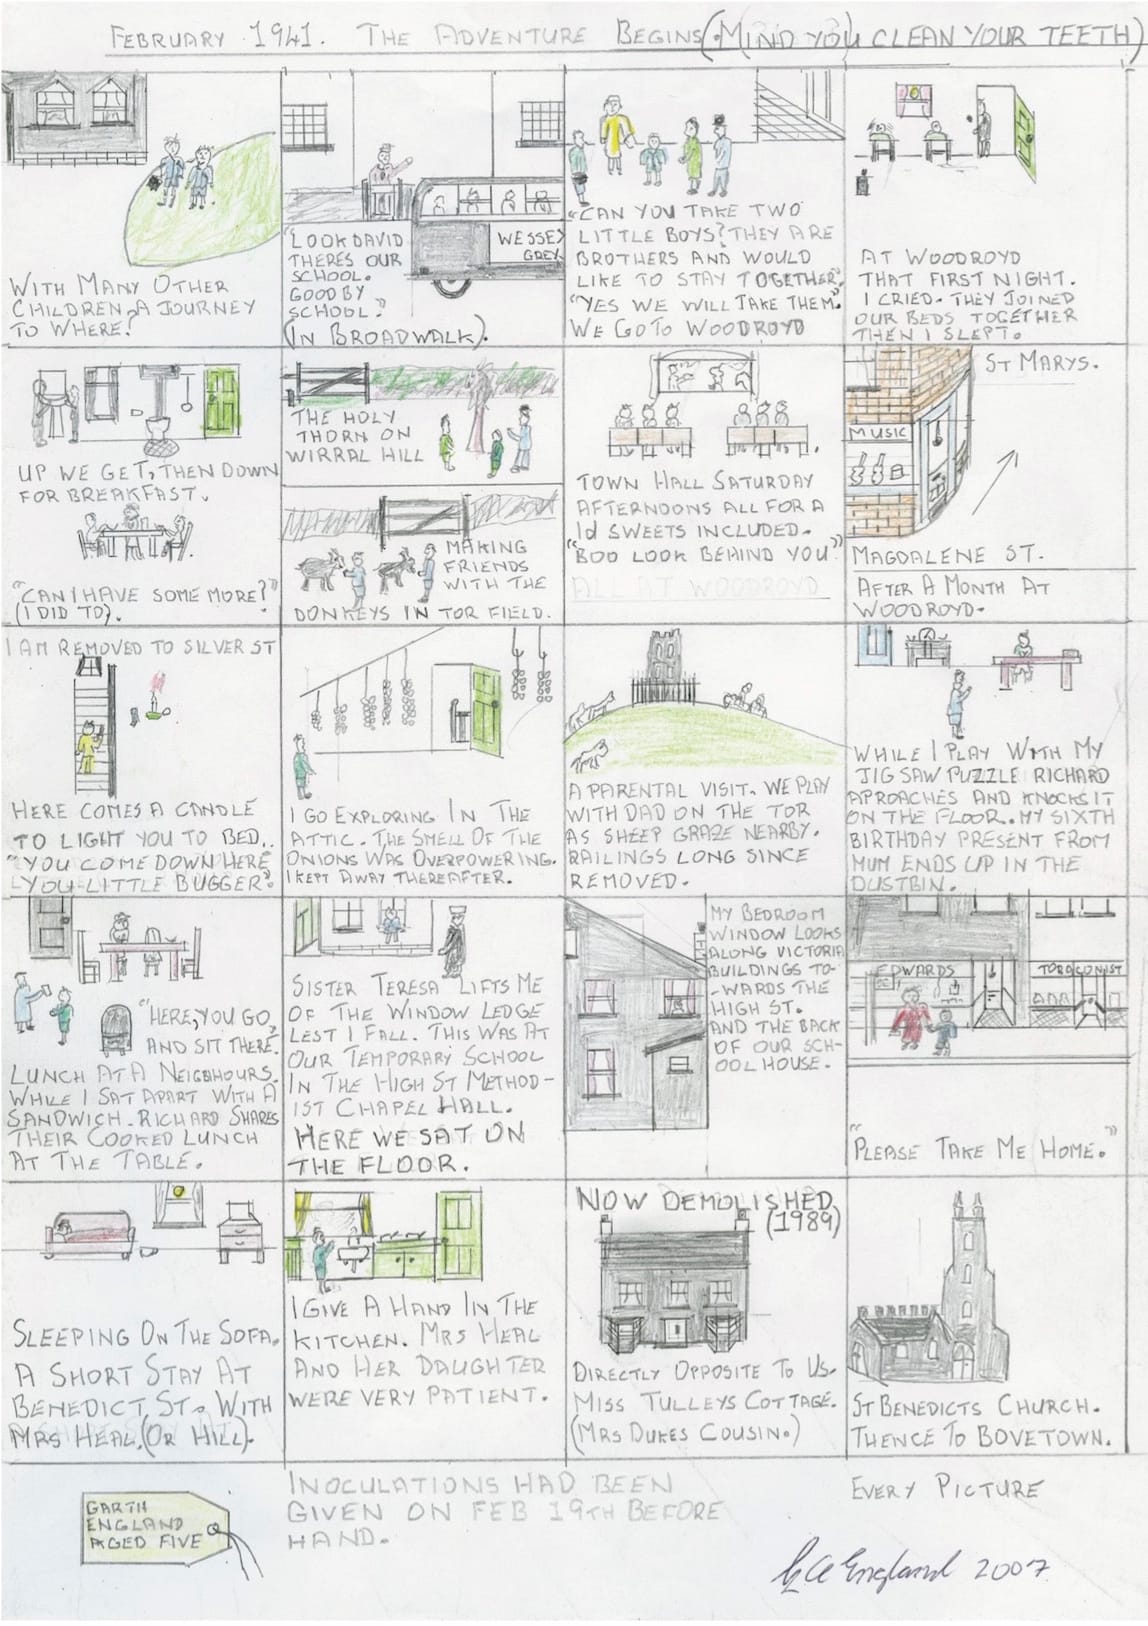 FEBRUARY 1941. THE ADVENTURE BEGINS (MIND YOU CLEAN YOUR TEETH)
WITH MANY OTHER
CHILDREN A JOURNEY
TO WHERE?
WESSEX
GREY
"LOOK DAVID
THERES OUR
SCHOOL.
GOODBY
SCHOOL."
(IN BROADWALK).
"CAN YOU TAKE TWO
LITTLE BOYS? THEY ARE
BROTHERS AND WOULD
LIKE TO STAY TOGETHER."
"YES WE WILL TAKE THEM."
WE GO TO WOODROYD
AT WOODROYD
THAT FIRST NIGHT.
I CRIED. THEY JOINED
OUR BEDS TOGETHER
THEN I SLEPT.
UP WE GET, THEN DOWN
FOR BREAKFAST.
"CAN I HAVE SOME MORE?"
(I DID TO).
THE HOLY
THORN ON
WIRRAL HILL
MAKING
FRIENDS
WITH THE
DONKEYS IN TOR FIELD.
TOWN HALL SATURDAY
AFTERNOONS ALL FOR A
1d SWEETS INCLUDED.
"BOO LOOK BEHIND YOU"
ALL AT WOODROYD
ST MARYS.
MUSIC
MAGDALENE ST.
AFTER A MONTH AT
WOODROYD.
I AM REMOVED TO SILVER ST
HERE COMES A CANDLE
TO LIGHT YOU TO BED..
"YOU COME DOWN HERE
YOU LITTLE BUGGER."
I GO EXPLORING IN THE
ATTIC. THE SMELL OF THE
ONIONS WAS OVERPOWERING.
I KEPT AWAY THEREAFTER.
A PARENTAL VISIT. WE PLAY
WITH DAD ON THE TOR
AS SHEEP GRAZE NEARBY.
RAILINGS LONG SINCE
REMOVED.
WHILE I PLAY WITH MY
JIG SAW PUZZLE RICHARD
APROACHES AND KNOCKS IT
ON THE FLOOR. MY SIXTH
BIRTHDAY PRESENT FROM
MUM ENDS UP IN THE
DUSTBIN.
"HERE, YOU GO,
AND SIT THERE."
LUNCH AT A NEIGBHOURS.
WHILE I SAT APART WITH A
SANDWICH. RICHARD SHARES
THEIR COOKED LUNCH
AT THE TABLE.
SISTER TERESA LIFTS ME
OF THE WINDOW LEDGE
LEST I FALL. THIS WAS AT
OUR TEMPORARY SCHOOL
IN THE HIGH ST METHOD-
IST CHAPEL HALL.
HERE WE SAT ON
THE FLOOR.
MY BEDROOM
WINDOW LOOKS
ALONG VICTORIA
BUILDINGS TO-
-WARDS THE
HIGH ST.
AND THE BACK
OF OUR SCH-
OOL HOUSE.
EDWARDS
TOBACCONIST
"PLEASE TAKE ME HOME."
SLEEPING ON THE SOFA.
A SHORT STAY AT
BENEDICT ST. WITH
MRS HEAL. (OR HILL).
I GIVE A HAND IN THE
KITCHEN. MRS HEAL
AND HER DAUGHTER
WERE VERY PATIENT.
NOW DEMOLISHED
(1989)
DIRECTLY OPPOSITE TO US.
MISS TULLEYS COTTAGE.
(MRS DUKES COUSIN.)
ST BENEDICTS CHURCH.
THENCE TO BOVETOWN.
GARTH
ENGLAND
AGED FIVE
INOCULATIONS HAD BEEN
GIVEN ON FEB 19TH BEFORE
HAND.
EVERY PICTURE
G A England 2007